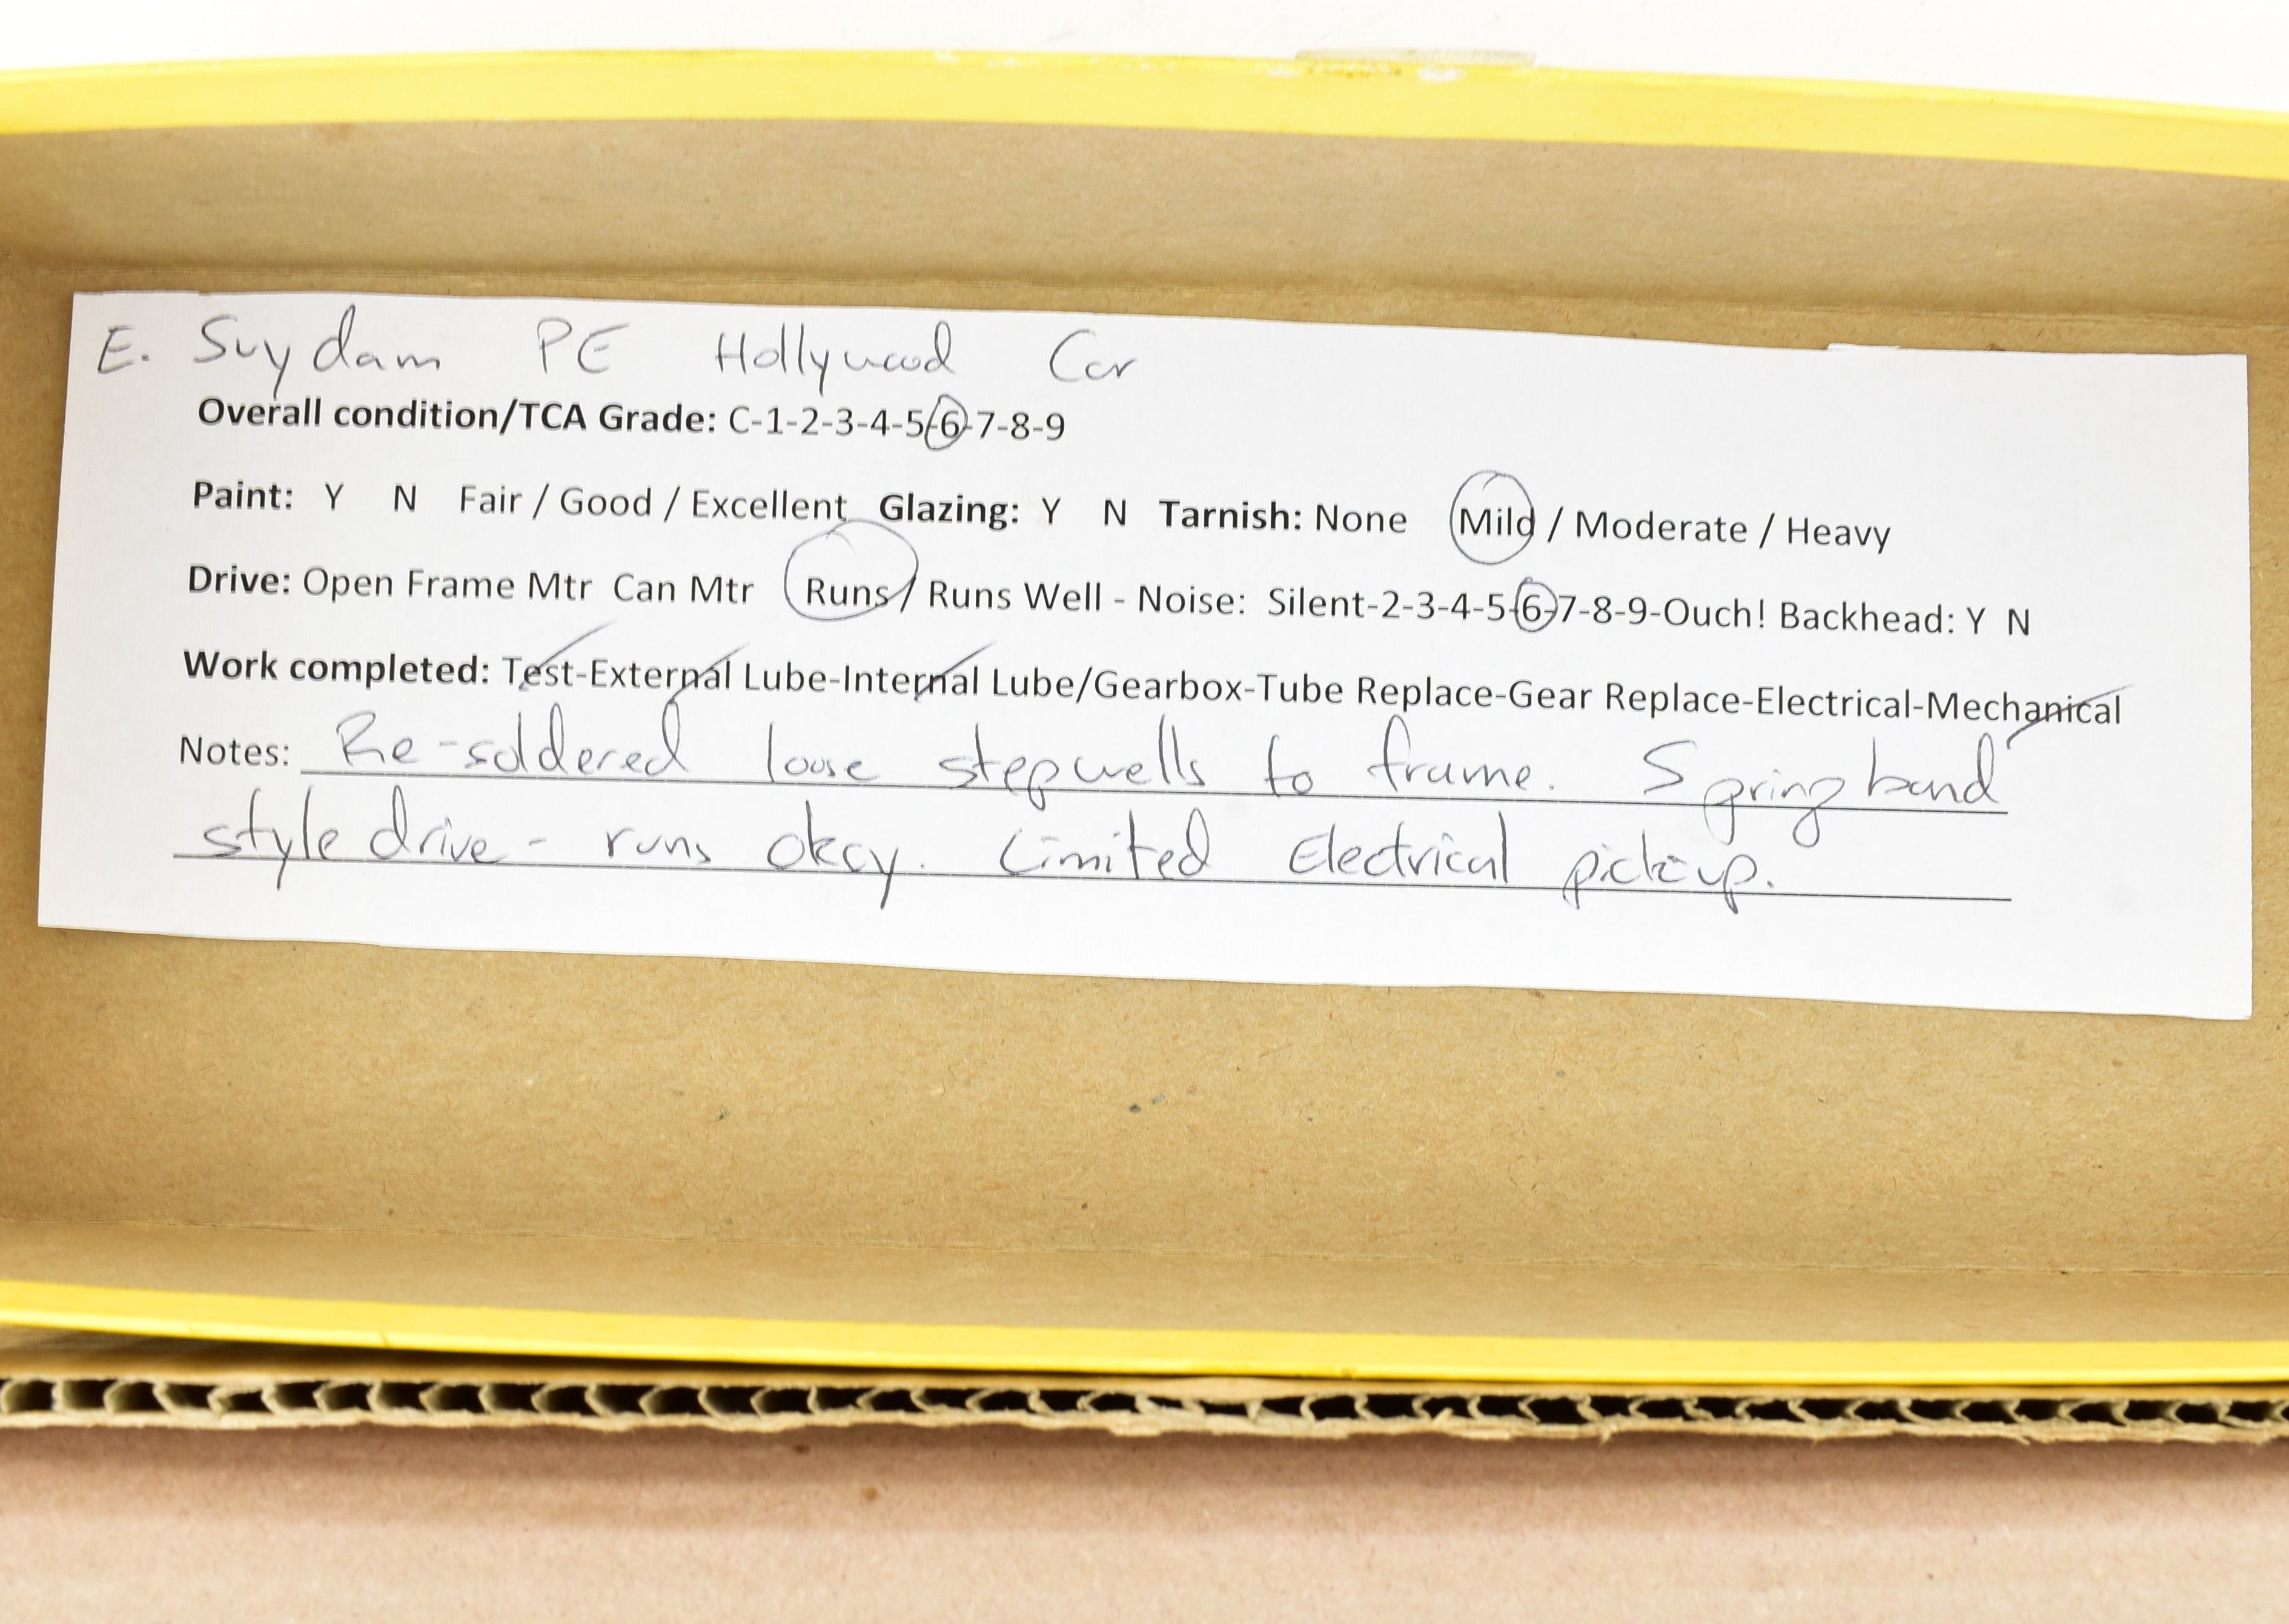 E. Suydam PE Hollywood Car
Overall condition/TCA Grade: C-1-2-3-4-5-6-7-8-9
Paint: Y N Fair / Good / Excellent Glazing: Y N Tarnish: None Mild / Moderate / Heavy
Drive: Open Frame Mtr Can Mtr Runs / Runs Well - Noise: Silent-2-3-4-5-6-7-8-9-Ouch! Backhead: Y N
Work completed: Test-External Lube-Internal Lube/Gearbox-Tube Replace-Gear Replace-Electrical-Mechanical
Notes: Re-soldered loose stepwells to frame. Spring band
style drive - runs okay. Limited Electrical pickup.